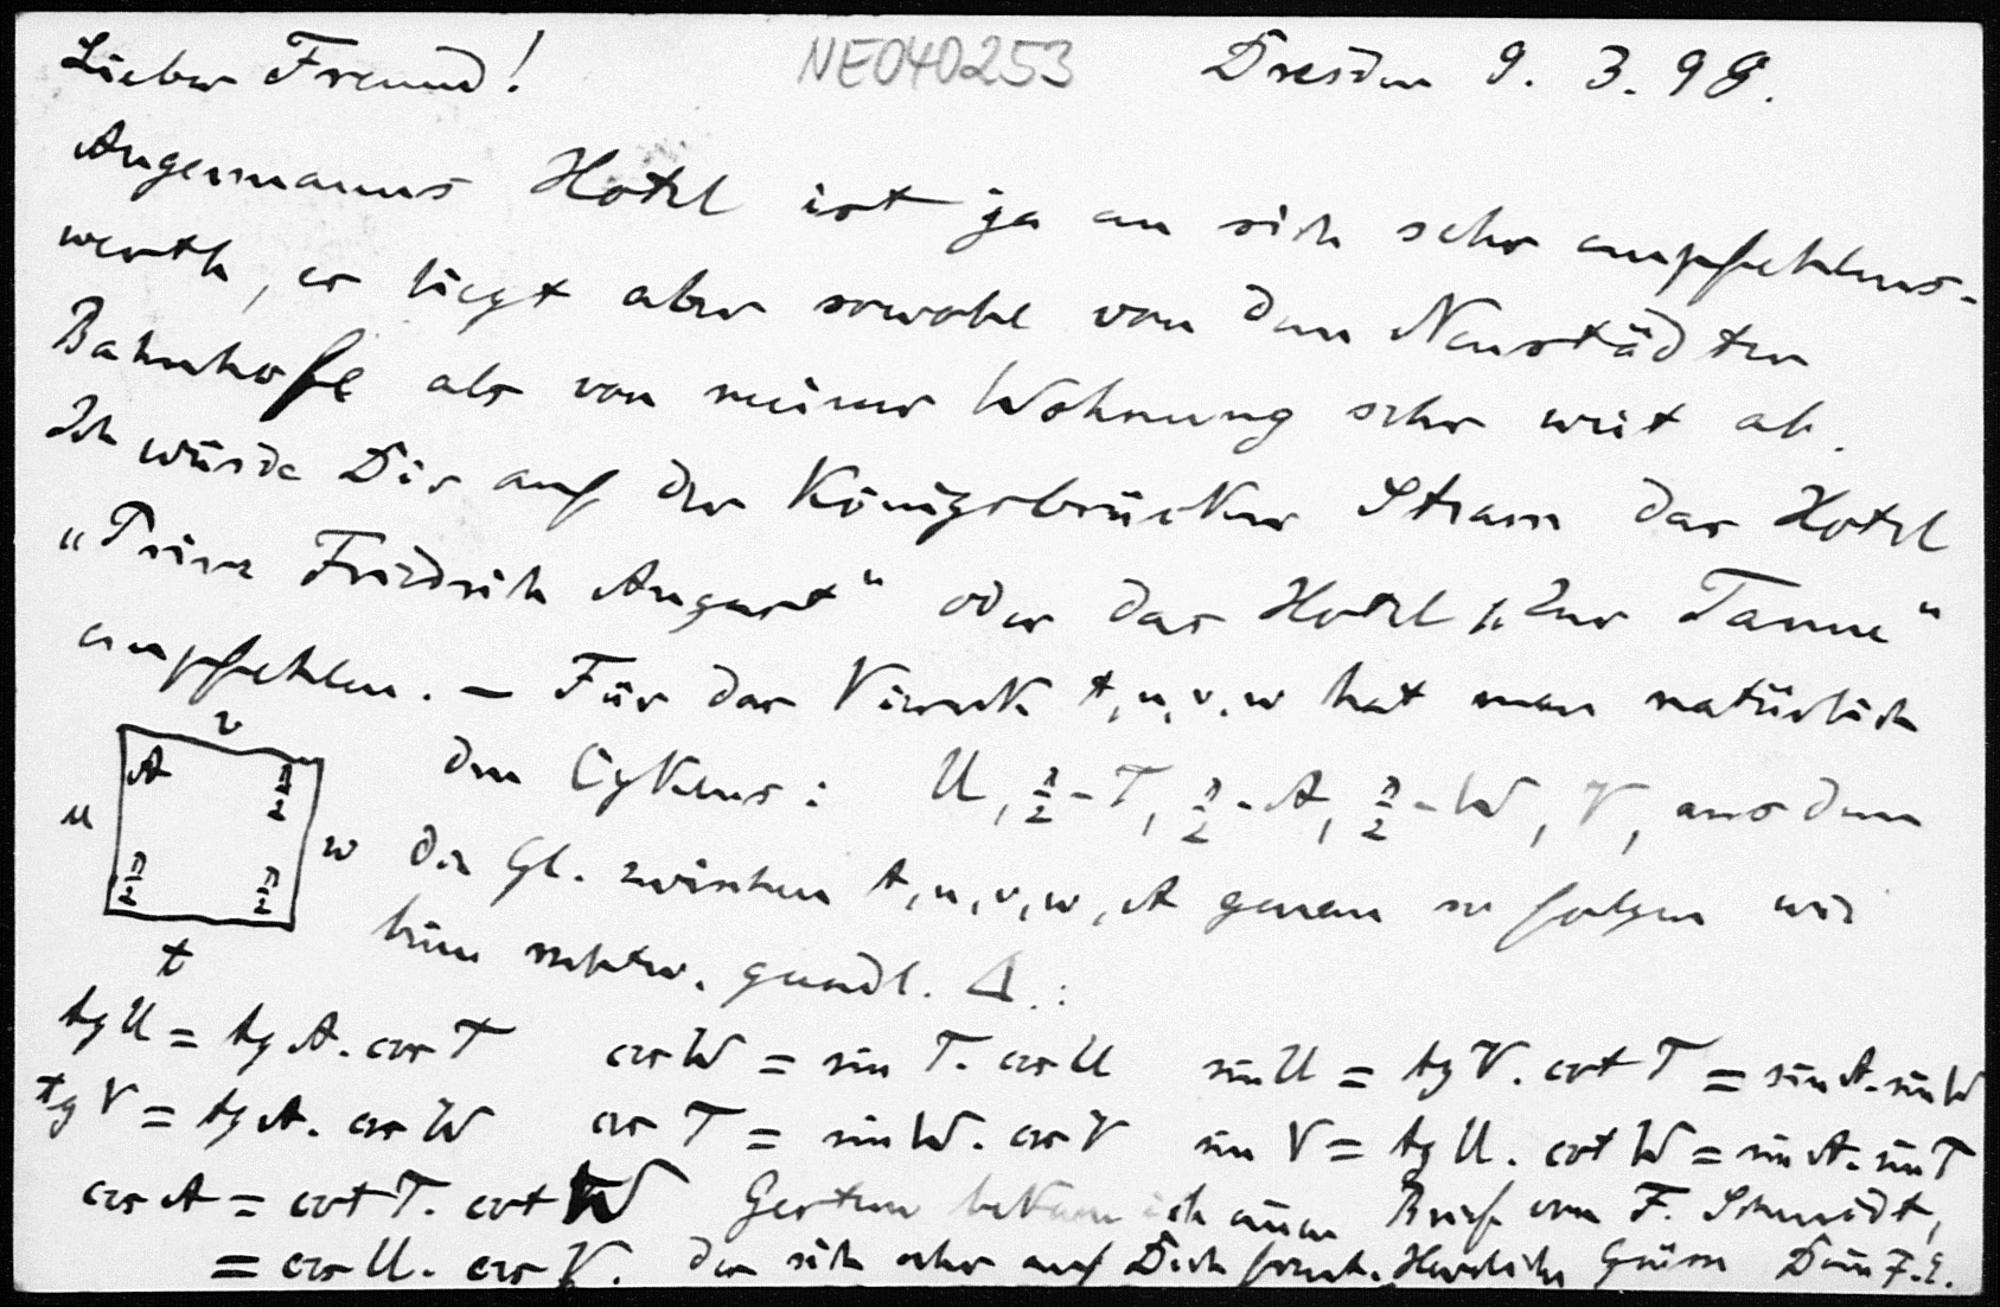 Lieber Freund! NE040253 Dresden 9. 3. 98.
Angermanns Hotel ist ja an sich sehr empfehlens-
werth, es liegt aber sowohl von dem Neustädter
Bahnhofe als von meiner Wohnung sehr weit ab.
Ich würde Dir auf der Königsbrücker Strasse das Hotel
„Prinz Friedrich August“ oder das Hotel „Zur Tanne“
empfehlen. – Für das Viereck t, u, v, w hat man natürlich
v
A π/2
den Cyklus: U, π/2 - T, π/2 - A, π/2 - W, V, aus dem
u w die Gl. zwischen t, u, v, w, A genau so folgen wie
π/2 π/2
beim rechtw. geradl. Δ.:
t
tg U = tg A. cos T cos W = sin T. cos U sin U = tg V. cot T = sin A. sin W
tg V = tg A. cos W cos T = sin W. cos V sin V = tg U. cot W = sin A. sin T
cos A = cot T. cot W Gestern bekam ich einen Brief von F. Schmidt,
= cos U. cos V. der sich sehr auf Dich freut. Herzliche Grüsse Dein F. E.